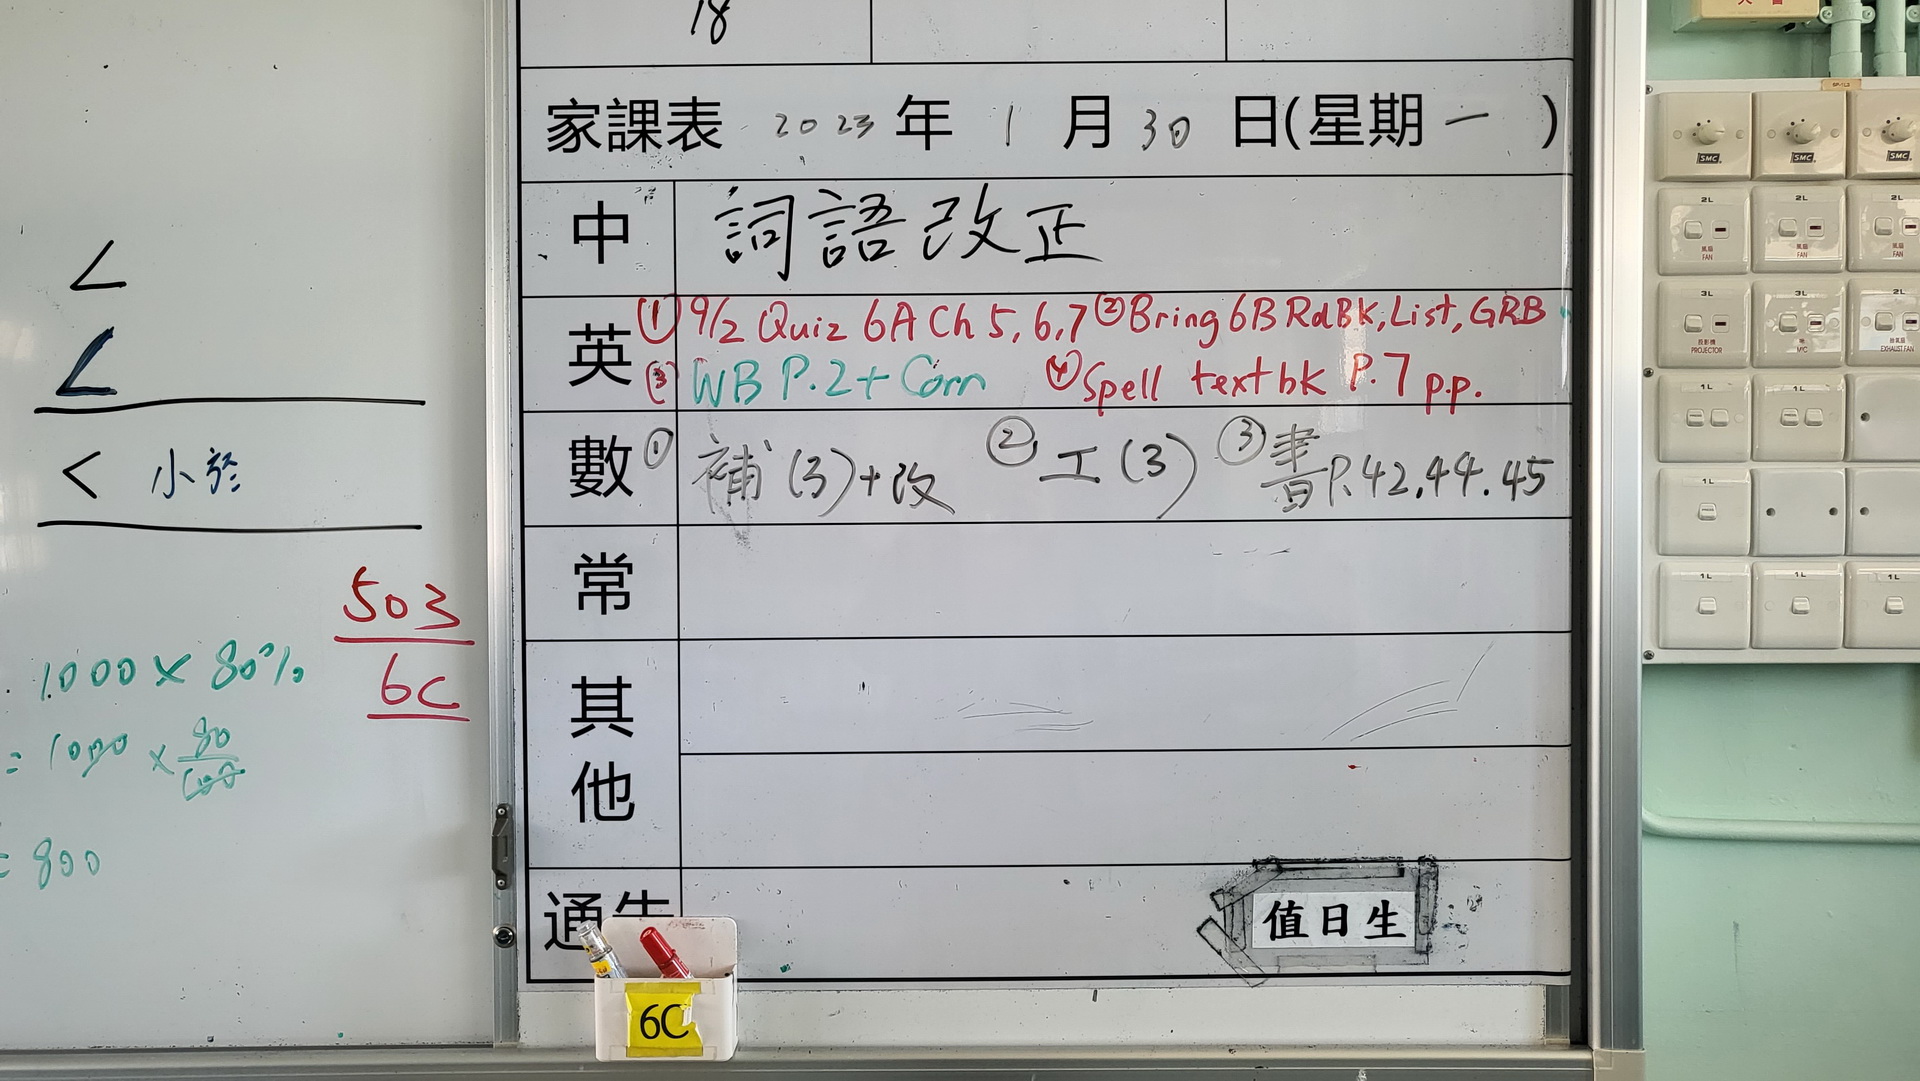 18
家課表 2023 年 1 月 30 日(星期一 )
中 詞語改正
英 ① 9/2 Quiz 6A Ch 5, 6, 7 ② Bring 6B RdBk, List, GRB
③ WB P.2 + Corr ④ Spell textbk P.7 pp.
數 ① 補(3)+改 ② 工(3) ③ 書P.42,44.45
常
其他
通告
值日生
6C
<
<
< 小於
503
6C
1000 × 80%
= 1000 × 80/100
= 800
SMC SMC SMC
2L 2L 2L
風扇 風扇 風扇
FAN FAN FAN
3L 3L 2L
投影機 咪 抽氣扇
PROJECTOR MIC EXHAUST FAN
1L 1L
1L
1L 1L 1L